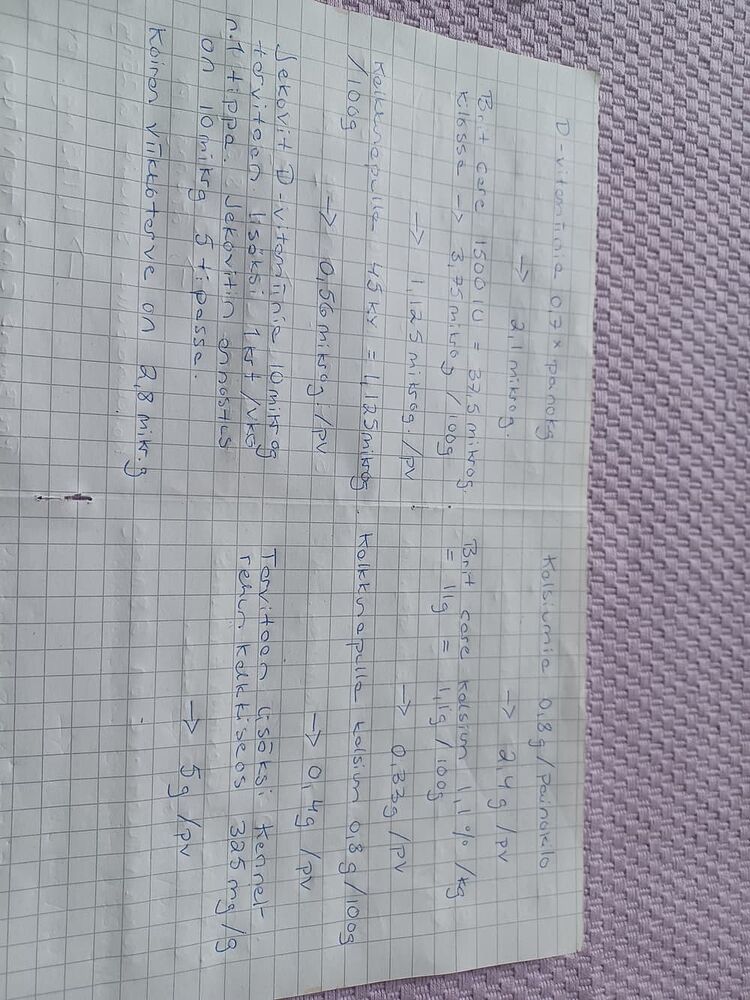 D-vitamiinia 0,7 x painokg
→ 2,1 mikrog.
Brit care 1500 IU = 37,5 mikrog.
kilossa → 3,75 mikrog / 100g
→ 1,125 mikrog. /pv
Kalkkunapulla 45 ky = 1,125 mikrog
/100g
→ 0,56 mikrog /pv
Jekovit D-vitamiinia 10 mikrog
tarvitaan lisäksi 1 krt/vko
n. 1 tippa. Jekovitin annostus
on 10 mikrog 5 tipassa.
Koiran viikkotarve on 2,8 mikr.g
Kalsiumia 0,8g/painokilo
→ 2,4g /pv
Brit care kalsium 1,1% /kg
= 11g = 1,1g/100g
→ 0,33g /pv
Kalkkunapulla kalsium 0,8g/100g
→ 0,4g /pv
Tarvitaan lisäksi kennel-
rehun kalkkiseos 325 mg/g
→ 5g /pv